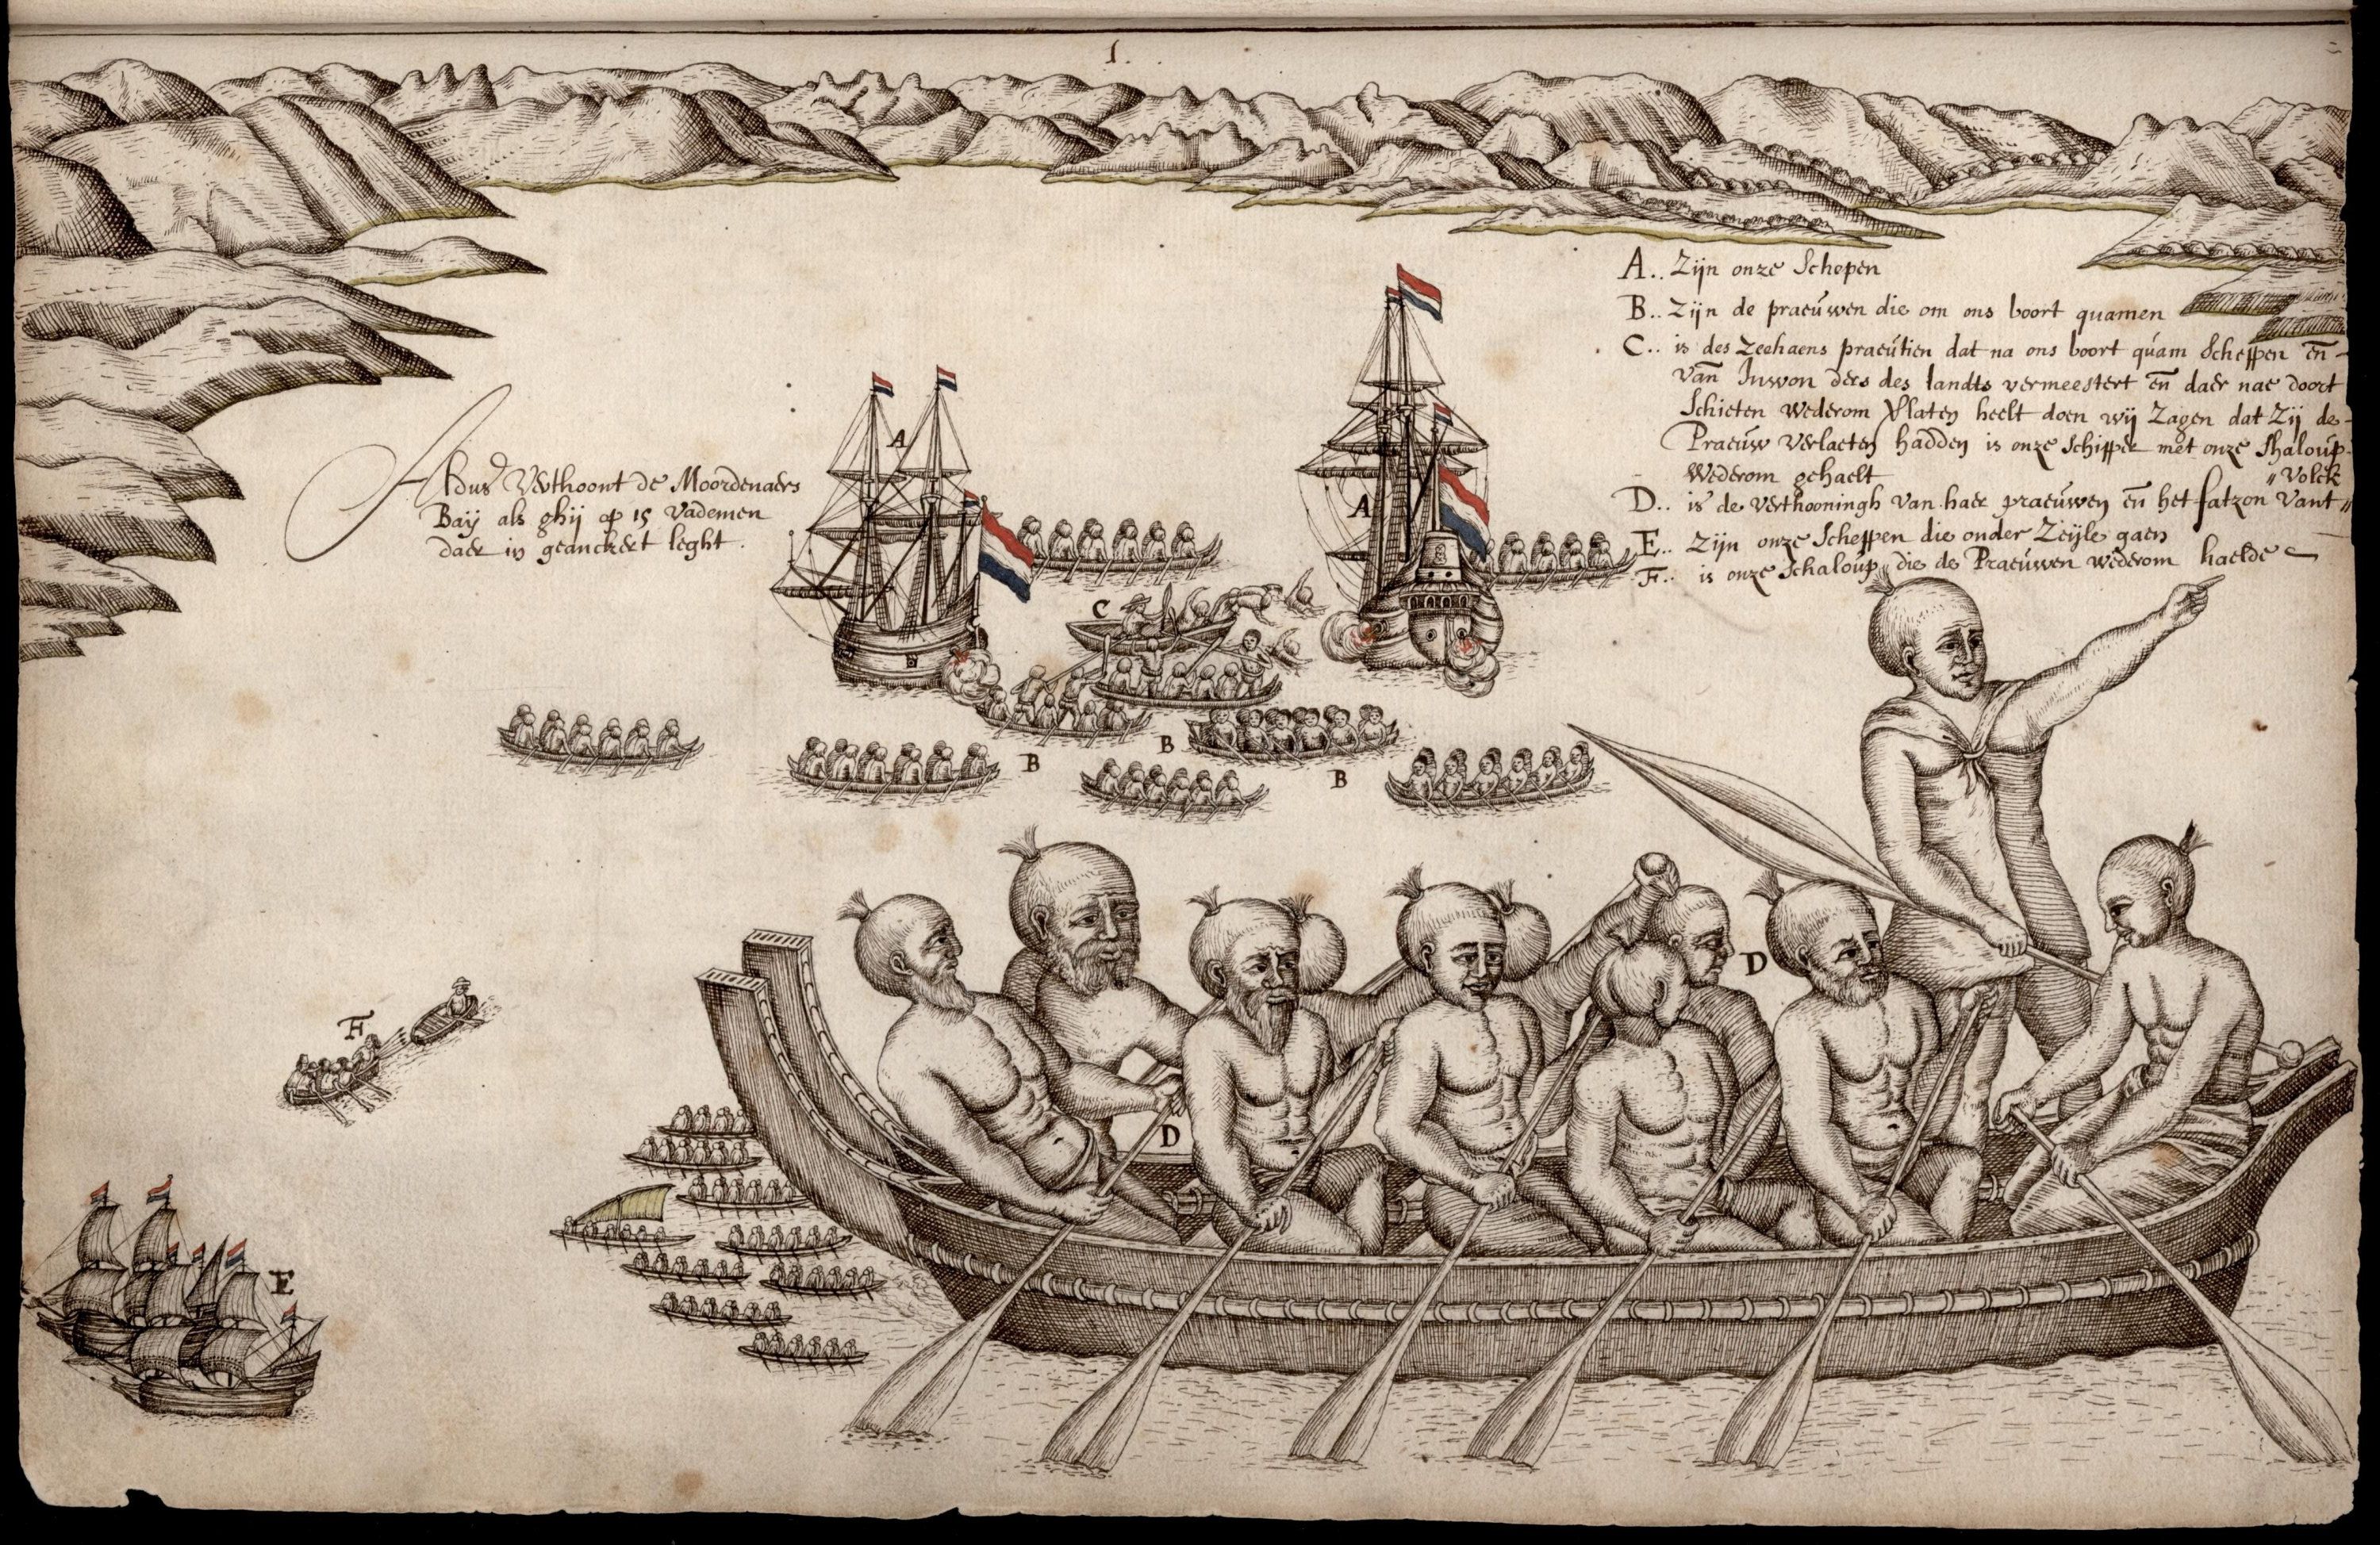 1.
A.. Zijn onze Schepen
B.. Zijn de praeúwen die om ons boort quamen
C.. is des Zeehaens praeútien dat na ons boort quam Scheppen en̄
van Inwon ders des landts vermeestert en̄ daer nae doort
Schieten wederom Vlaten heelt doen wij Zagen dat Zij de
Praeúw verlaeten hadden is onze Schipper met onze Shaloúp
wederom gehaelt
D.. is de verthooningh van haer praeúwen en̄ het fatzon vant
" Volck
E.. Zijn onze Scheppen die onder Zeijle gaen
F.. is onze Schaloúp die de Praeúwen wederom haelde
Aldus Verthoont de Moordenaers
Baij als ghij op 15 vademen
daer in geanckert leght.
A
A
C
B
B
B
D
D
F
E